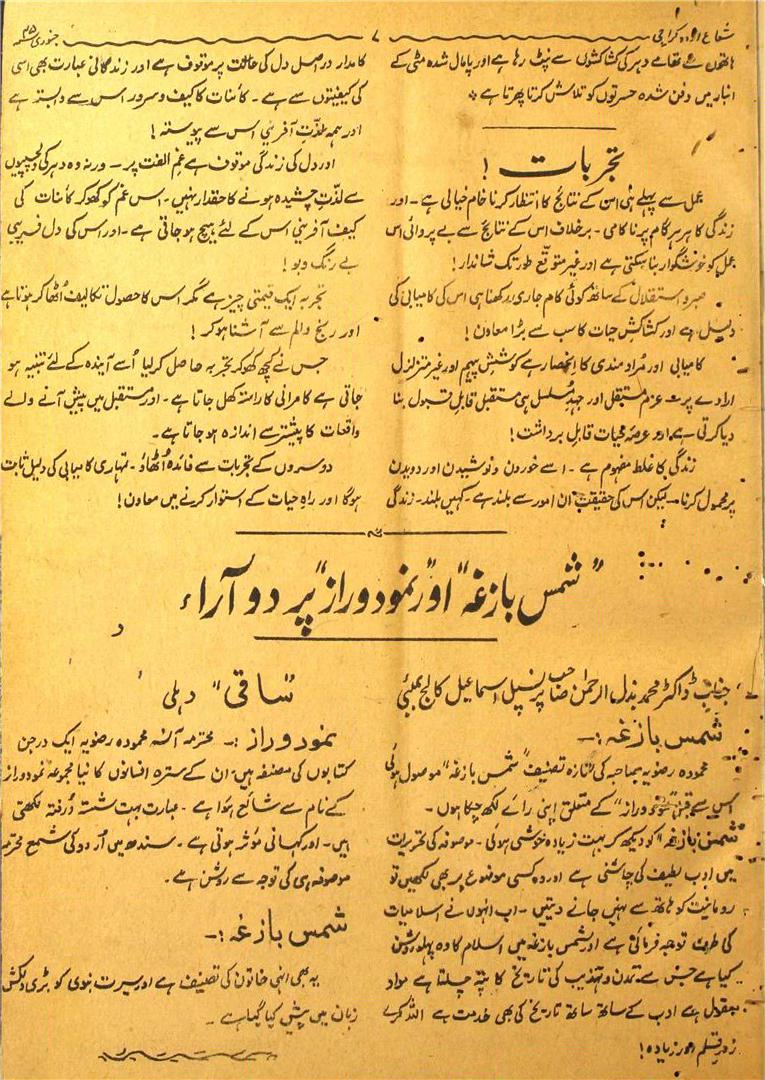 شعاع اردو کراچی
۷
جنوری ۴۵ء
ہاتھوں سے تھامے دہر کی کشاکشوں سے نپٹ رہا ہے اور پامال شدہ مٹی کے
انبار میں دفن شدہ حسرتوں کو تلاش کرتا پھرتا ہے
تجربات !
عمل سے پہلے ہی اس کے نتائج کا انتظار کرنا خام خیالی ہے ۔ اور
زندگی کا ہر ہر گام پر ناکامی ۔ برخلاف اس کے نتائج سے بے پروائی اس
عمل کو خوشگوار بنا سکتی ہے اور غیر متوقع طور تک شاندار !
صبر و استقلال کے ساتھ کوئی کام جاری رکھنا ہی اس کی کامیابی کی
دلیل ہے اور کشاکش حیات کا سب سے بڑا معاون !
کامیابی اور مُراد مندی کا انحصار ہے کوشش پیہم اور غیر متزلزل
ارادے پر ۔ عزم مستقل اور جہد مسلسل ہی مستقبل قابل قبول بنا
دیا کرتی ہے اور عرصہ حیات قابل برداشت !
زندگی کا غلط مفہوم ہے ۔ اسے خوردن و نوشیدن اور دویدن
پر محمول کرنا ۔ لیکن اس کی حقیقت ان امور سے بلند ہے ۔ کہیں بلند ۔ زندگی
کا مدار دراصل دل کی حالت پر موقوف ہے اور زندگانی عبارت بھی اسی
کی کیفیتوں سے ہے ۔ کائنات کا کیف و سرور اس سے وابستہ ہے
اور ہمہ لذت آفرینی اس سے پیوستہ !
اور دل کی زندگی موقوف ہے غم الفت پر ۔ ورنہ وہ دہر کی دلچسپیوں
سے لذت چشیدہ ہونے کا حقدار نہیں ۔ اس غم کو کھو کر کائنات کی
کیف آفرینی اس کے لئے ہیچ ہو جاتی ہے ۔ اور اس کی دل فریبی
بے رنگ و بو !
تجربہ ایک قیمتی چیز ہے مگر اس کا حصول تکالیف اُٹھا کر ہوتا ہے
اور رنج و الم سے آشنا ہو کر !
جس نے کچھ کھو کر تجربہ حاصل کر لیا اُسے آیندہ کے لئے تنبیہ ہو
جاتی ہے کامرانی کا راستہ کھل جاتا ہے ۔ اور مستقبل میں پیش آنے والے
واقعات کا پیشتر سے اندازہ ہو جاتا ہے ۔
دوسروں کے تجربات سے فائدہ اُٹھاؤ ۔ تمہاری کامیابی کی دلیل ثابت
ہوگا اور راہِ حیات کے استوار کرنے میں معاون !
"شمس بازغہ" اور "نمود و راز" پر دو آراء
جناب ڈاکٹر محمد بذل الرحمٰن صاحب پرنسپل اسماعیل کالج بمبئی
شمس بازغہ :۔
محمودہ رضویہ صاحبہ کی تازہ تصنیف "شمس بازغہ" موصول ہوئی
اس سے قبل "نمود و راز" کے متعلق اپنی رائے لکھ چکا ہوں ۔
"شمس بازغہ" کو دیکھ کر بہت زیادہ خوشی ہوئی ۔ موصوفہ کی تحریرات
میں ادب لطیف کی چاشنی ہے اور وہ کسی موضوع پر بھی لکھیں تو
رومانیت کو ہاتھ سے نہیں جانے دیتیں ۔ اب انہوں نے اسلامیات
کی طرف توجہ فرمائی ہے اور شمس بازغہ میں اسلام کا وہ پہلو روشن
کیا ہے جس سے تمدن و تہذیب کی تاریخ کا پتہ چلتا ہے مواد
معقول ہے ادب کے ساتھ ساتھ تاریخ کی بھی خدمت ہے اللہ کرے
زورِ قلم اور زیادہ !
"ساقی" دہلی
نمود و راز :۔ محترمہ آنسہ محمودہ رضویہ ایک درجن
کتابوں کی مصنفہ ہیں ۔ ان کے سترہ افسانوں کا نیا مجموعہ نمود و راز
کے نام سے شائع ہوا ہے ۔ عبارت بہت شستہ و رُفتہ لکھتی
ہیں ۔ اور کہانی مؤثر ہوتی ہے ۔ سندھ میں اُردو کی شمع محترمہ
موصوفہ ہی کی توجہ سے روشن ہے ۔
شمس بازغہ :۔
یہ بھی انہی خاتون کی تصنیف ہے اور سیرت نبوی کو بڑی دلکش
زبان میں پیش کیا گیا ہے ۔